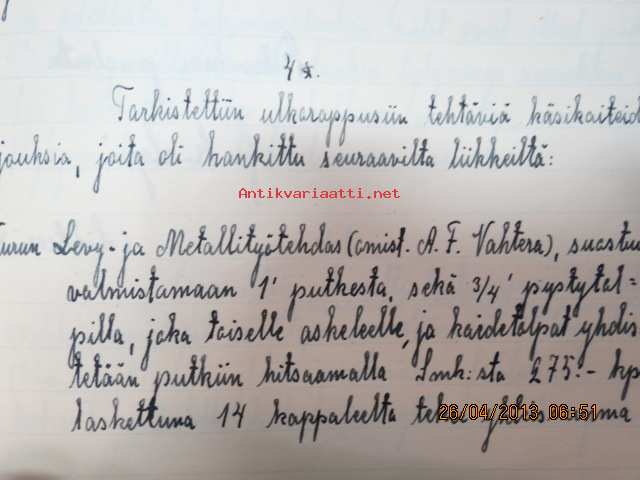 4§.
Tarkistettiin ulkorappusiin tehtäviä käsikaiteid
jouksia, joita oli hankittu seuraavilta liikkeiltä:
Antikvariaatti.net
Turun Levy- ja Metallityötehdas (omist. A. F. Vahtera), suostuu
valmistamaan 1' putkesta, sekä 3/4' pystytol=
pilla, joka toiselle askeleelle, ja kaidetolpat yhdis
tetään putkiin hitsaamalla Smk:sta 275:- kp
laskettuna 14 kappaleelta tekee
26/04/2013 06:51